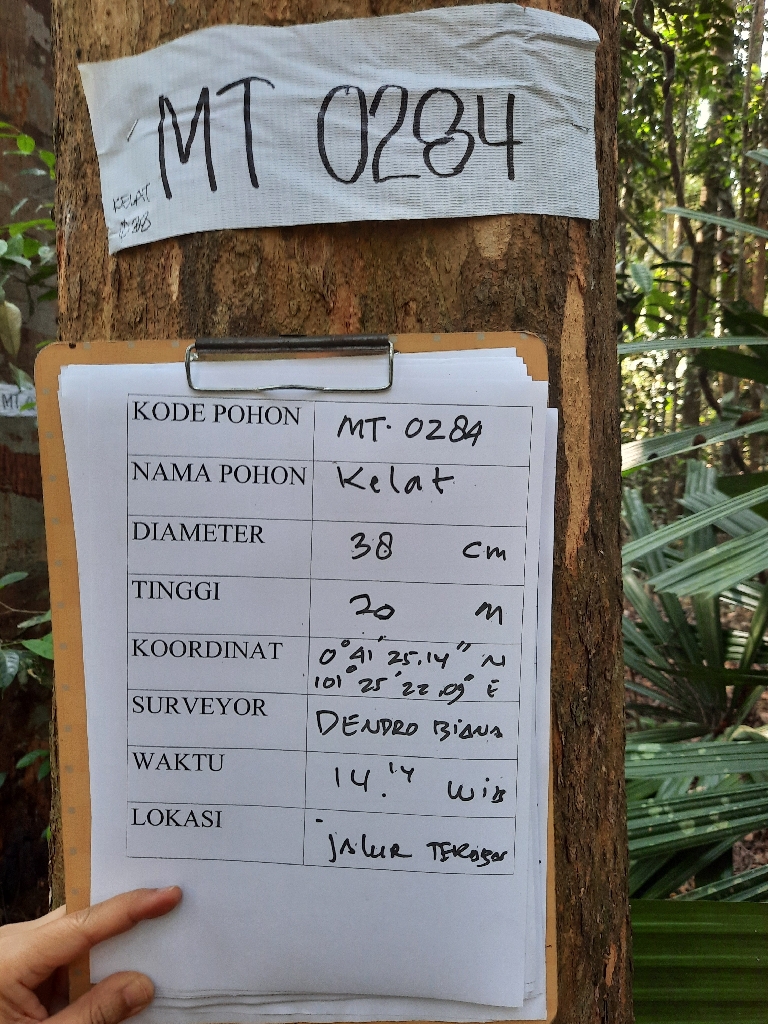 MT 0284
KELAT
Ø 38
MT
KODE POHON MT. 0284
NAMA POHON Kelat
DIAMETER 38 cm
TINGGI 20 M
KOORDINAT 0° 41' 25.14" N
101° 25' 22.09" E
SURVEYOR DENDRO BIANA
WAKTU 14.14 WIB
LOKASI JALUR TEROBOS